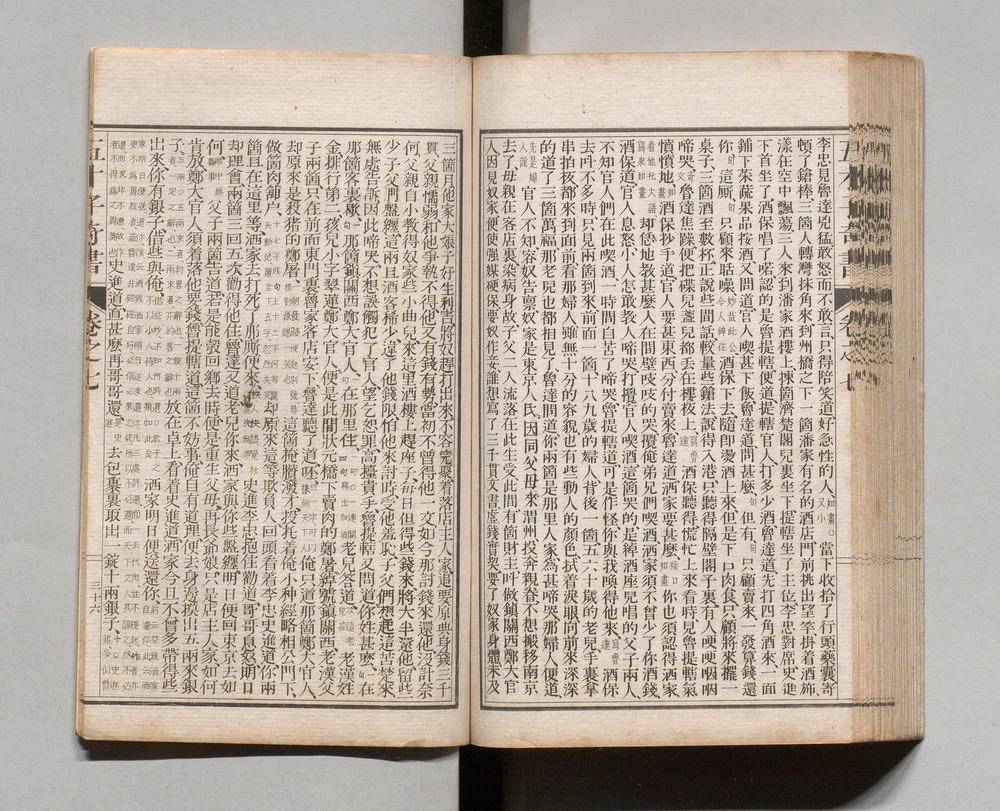 五才子奇書
卷之七
李忠見魯達兇猛敢怒而不敢言只得陪笑道好急性的人如畫。又小當下收拾了行頭藥囊寄
頓了鎗棒三箇人轉灣抹角來到州橋之下一箇潘家有名的酒店門前挑出望竿掛着酒旆
漾在空中飄蕩三人來到潘家酒樓上揀箇濟楚閣兒裏坐下提轄坐了主位李忠對席史進
下首坐了酒保唱了喏認的是魯提轄便道提轄官人打多少酒魯達道先打四角酒來一面
鋪下菜蔬果品按酒又問道官人喫甚下飯魯達道問甚麼句但有句只顧賣來一發算錢還
你句這廝句只顧來聒噪妙哉此公令人神往酒保下去隨卽盪酒上來但是下口肉食只顧將來擺一
桌子三箇酒至數杯正說些閒話較量些鎗法說得入港只聽得隔壁閣子裏有人哽哽咽咽
啼哭奇文魯達焦躁便把碟兒盞兒都丟在樓板上寫魯達酒保聽得慌忙上來看時見魯提轄氣
憤憤地如畫酒保抄手道官人要甚東西分付賣來魯達道洒家要甚麼接口如畫你也須認得洒家
看他托大語却恁地教甚麼人在間壁吱吱的哭攪俺弟兄們喫酒洒家須不曾少了你酒錢寫來如畫
酒保道官人息怒小人怎敢教人啼哭打攪官人喫酒這箇哭的是綽酒座兒唱的父子兩人
不知官人們在此喫酒一時間自苦了啼哭魯提轄道可是作怪你與我喚得他來寫魯達酒保
去叫不多時只見兩箇到來前面一箇十八九歲的婦人背後一箇五六十歲的老兒手裏拿
串拍板都來到面前看那婦人雖無十分的容貌也有些動人的顏色拭着淚眼向前來深深
的道了三箇萬福那老兒也都相見了魯達問道你兩箇是那里人家爲甚啼哭那婦人便道
先是婦人說官人不知容奴告稟奴家是東京人氏因同父母來渭州投奔親眷不想搬移南京
去了母親在客店裏染病身故子父二人流落在此生受此間有箇財主叫做鎮關西鄭大官
人因見奴家便使强媒硬保要奴作妾誰想寫了三千貫文書虛錢實契要了奴家身體未及
三箇月他家大娘子好生利害將奴趕打出來不容完聚着落店主人家追要原典身錢三千
貫父親懦弱和他爭執不得他又有錢有勢當初不曾得他一文如今那討錢來還他沒計奈
何父親自小教得奴家些小曲兒來這里酒樓上趕座子每日但得些錢來將大半還他留些
少子父們盤纏這兩日酒客稀少違了他錢限怕他來討時受他羞恥子父們想起這苦楚來
無處告訴因此啼哭不想誤觸犯了官人望乞恕罪高擡貴手魯提轄又問道你姓甚麼一句在
那箇客店裏歇一句那箇鎮關西鄭大官人一句在那里住老兒答道老漢姓
金排行第二孩兒小字翠蓮鄭大官人便是此間狀元橋下賣肉的鄭屠綽號鎮關西老漢父
子兩箇只在前面東門裏魯家客店安下魯達聽了道呸俺只道那箇鄭大官人
却原來是殺猪的鄭屠這箇腌臢潑才投托着俺小种經略相公門下
做箇肉鋪戶却原來這等欺負人回頭看着李忠史進道你兩
箇且在這里等洒家去打死了那廝便來史進李忠抱住勸道哥哥息怒明日
却理會兩箇三回五次勸得他住魯達又道老兒你來洒家與你些盤纏明日便回東京去如
何父子兩箇告道若是能彀回鄉去時便是重生父母再長爺娘只是店主人家如何
肯放鄭大官人須着落他要錢魯提轄道這箇不妨事俺自有道理便去身邊摸出五兩來銀
子放在桌上看着史進道洒家今日不曾多帶得些
出來你有銀子借些與俺洒家明日便送還你
史進道直甚麼要哥哥還去包裹裏取出一錠十兩銀子
五才子奇書
卷之七
三十六